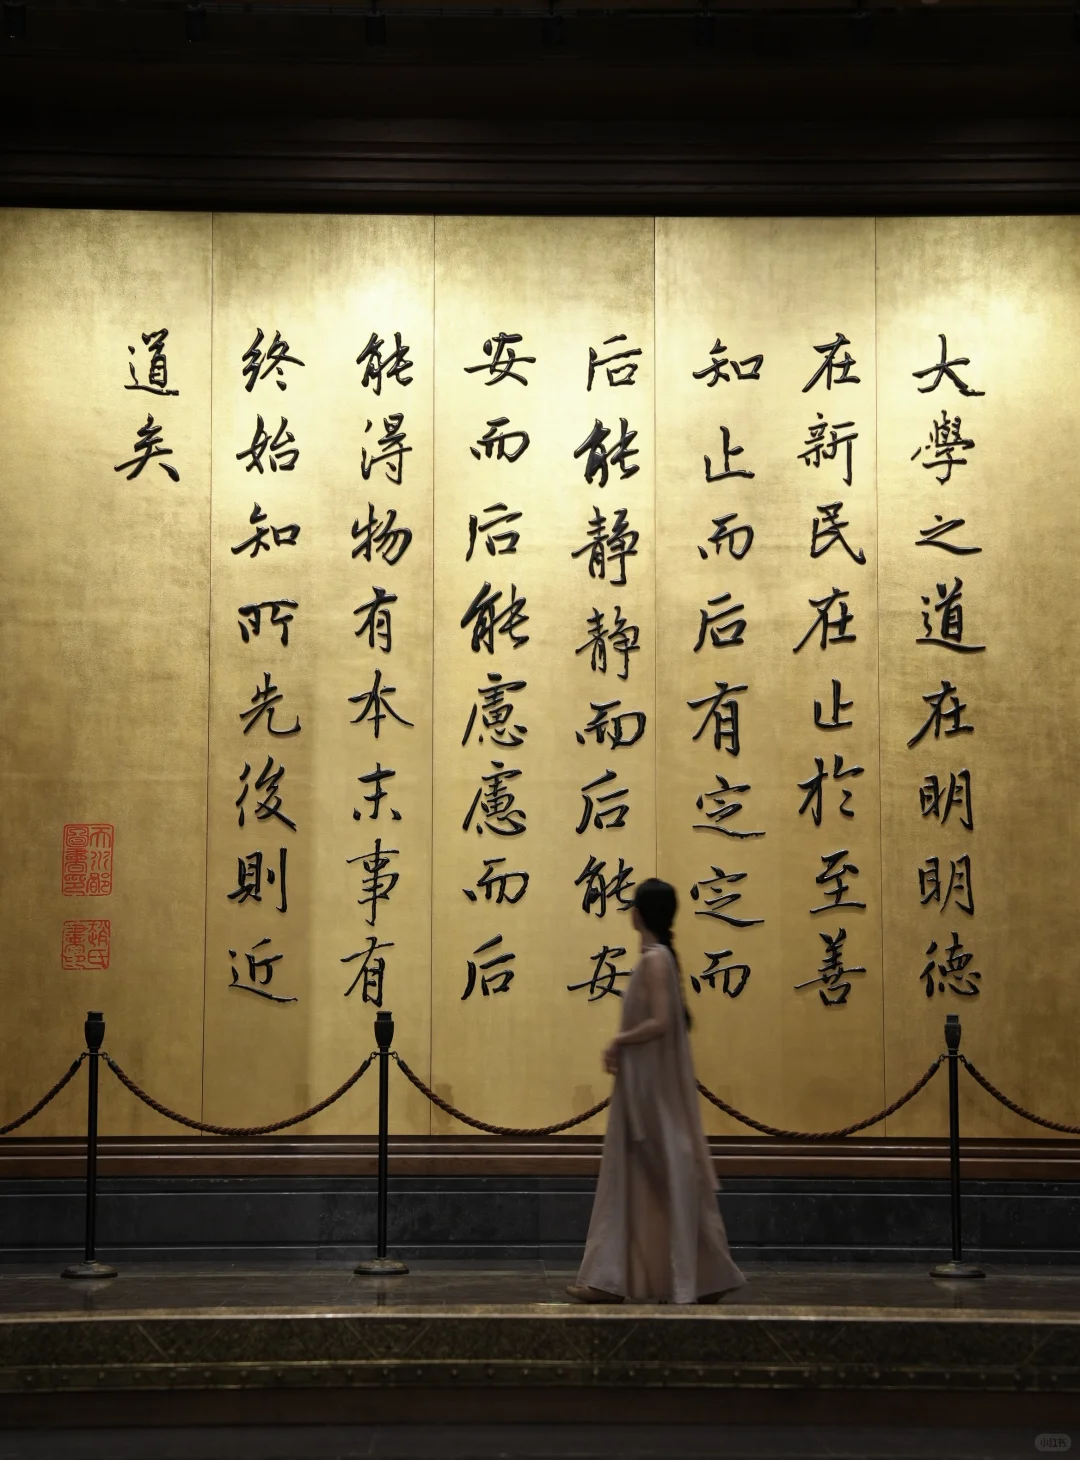 大學之道在明明德
在新民在止於至善
知止而后有定定而
后能靜靜而后能安
安而后能慮慮而后
能得物有本末事有
終始知所先後則近
道矣
天水郡圖書印
趙氏書印
小红书